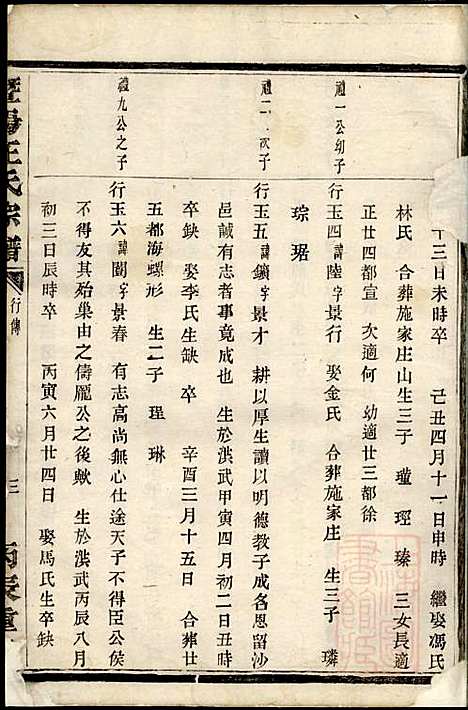 十三日未時卒 己丑四月十一日申時 繼娶馮氏
林氏 合葬施家庄山生三子 瓊 㻔 瑧 三女長適
正廿四都宣 次適何 幼適廿三都徐
禮一公幼子
行玉四諱陸字景行 娶金氏 合葬施家庄 生三子 璘
琮 琚
禮二 次子
行玉五諱鎮字景才 耕以厚生讀以明德教子成名恩留沙
邑誠有志者事竟成也 生於洪武甲寅四月初二日五時
卒缺 娶李氏生缺 卒 辛酉三月十五日 合葬廿
五都海螺形 生二子 瑆 琳
禮九公之子
行玉六諱闇字景春 有志高尚無心仕途天子不得臣公侯
不得友其殆巢由之儔龐公之後歟 生於洪武丙辰八月
初三日辰時卒 丙寅六月廿四日 娶馬氏生卒缺
暨陽王氏宗譜
行傳
三
丙辰重